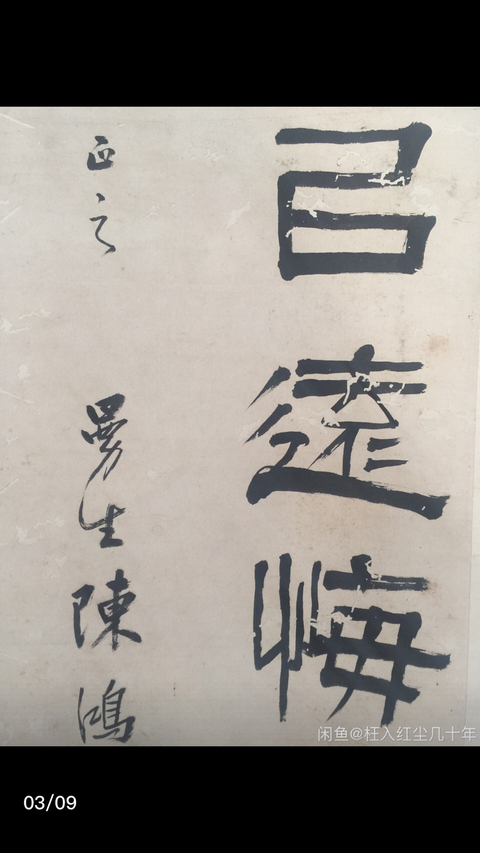 己遠悔
正之
曼生陳鴻
闲鱼@枉入红尘几十年
03/09